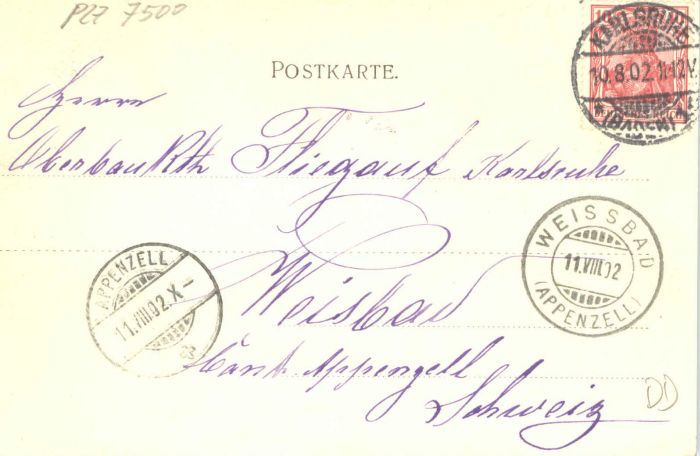 PLZ 7500
10
KARLSRUHE
10.8.02 11-12V.
* (BADEN) *
POSTKARTE.
Herrn
Oberbaurath Fliegauf Karlsruhe
WEISSBAD
11.VIII.02
(APPENZELL)
APPENZELL
11.VIII.02.X-
Weisbad
Cant. Appenzell
Schweiz